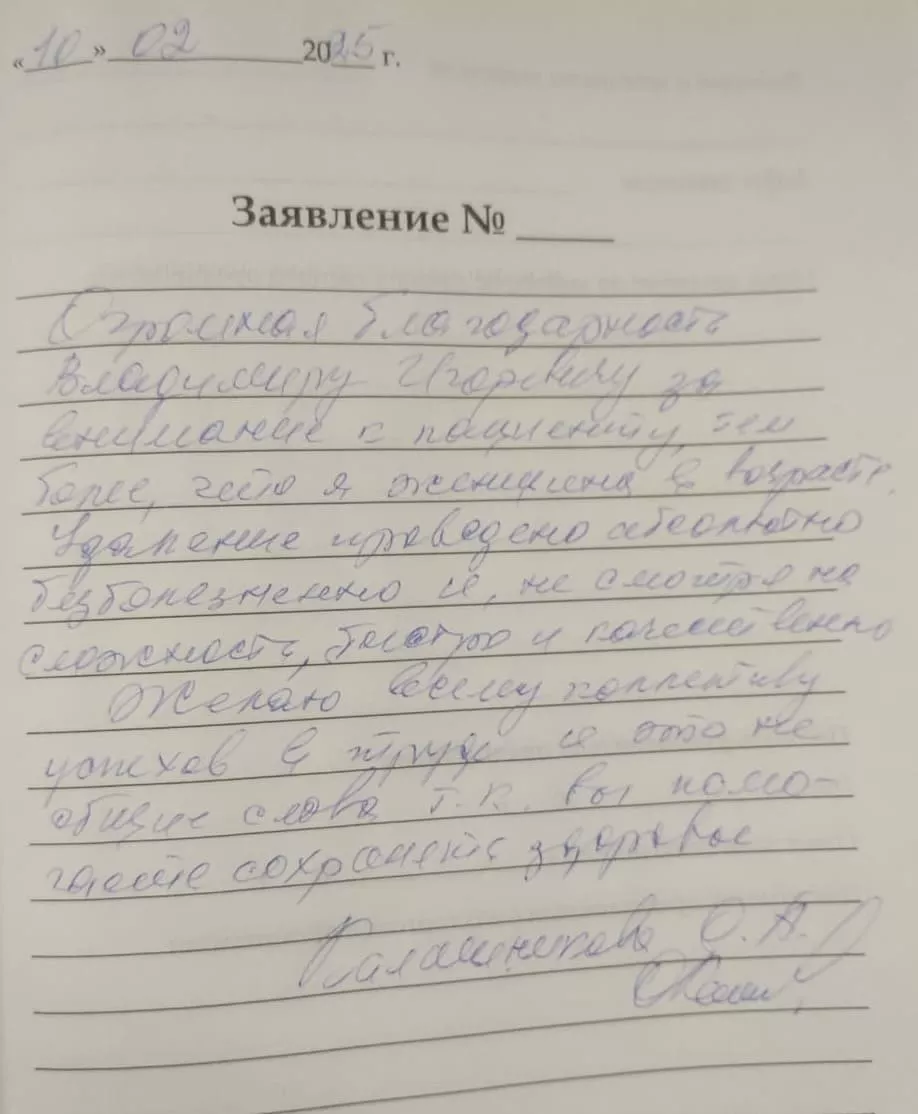 «10» 02 2025 г.
Заявление № ____
Огромная благодарность
Владимиру Игоревичу за
внимание к пациенту, тем
более, что я женщина в возрасте.
Удаление проведено абсолютно
безболезненно и, не смотря на
сложность, быстро и качественно
Желаю всему коллективу
успехов в труде и это не
общие слова т.к. вы помо-
гаете сохранять здоровье
Калашникова О.А.